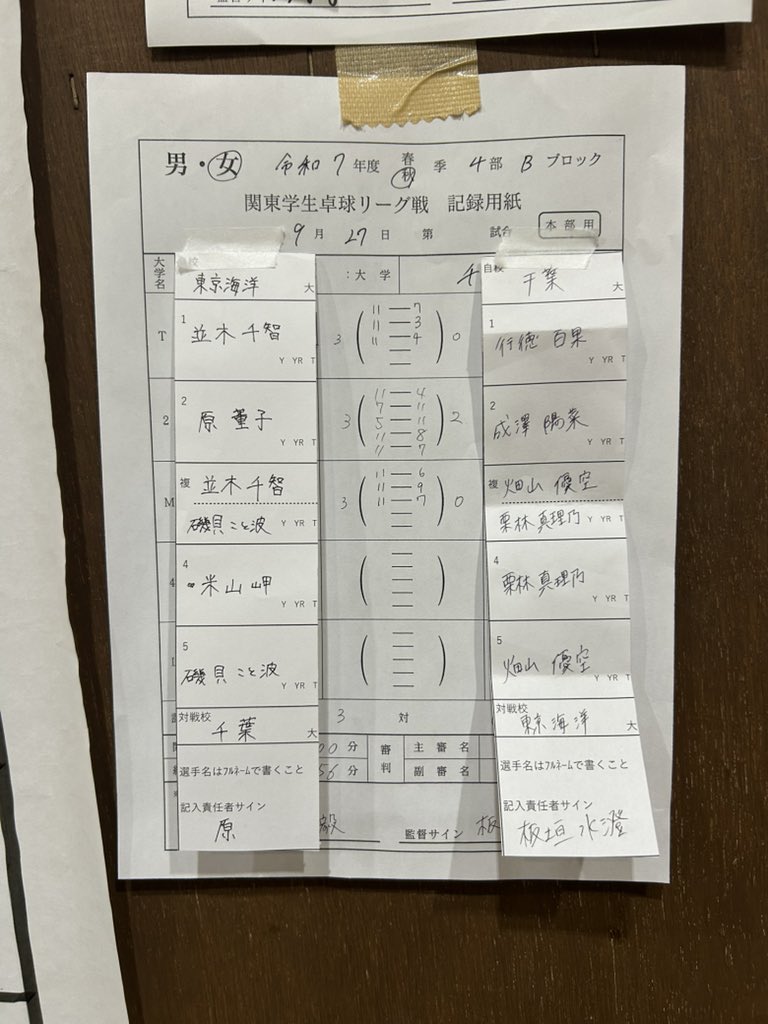 男・女 令和7年度 春秋 季 4部 B ブロック
関東学生卓球リーグ戦 記録用紙
9月 27日 第 試合 本部用
大学名 自校 東京海洋 大 :大学 千 自校 千葉 大
T 1 並木千智 Y YR T 3 0 1 行徳 百果 Y YR T
11 — 7
11 — 3
11 — 4
2 2 原 董子 Y YR T 3 2 2 成澤 陽菜 Y YR T
11 — 4
7 — 11
5 — 11
11 — 8
11 — 7
M 複 並木千智 3 0 複 畑山 優空
磯貝こと波 Y YR T 栗林真理乃 Y YR T
11 — 6
11 — 9
11 — 7
4 4 米山岬 Y YR T 4 栗林真理乃 Y YR T
5 磯貝こと波 Y YR T 5 畑山 優空 Y YR T
対戦校 千葉 大 3 対 対戦校 東京海洋 大
00分 審判 主審名
選手名はフルネームで書くこと 56分 副審名 選手名はフルネームで書くこと
記入責任者サイン 記入責任者サイン
原 毅 監督サイン 板 板垣水澄